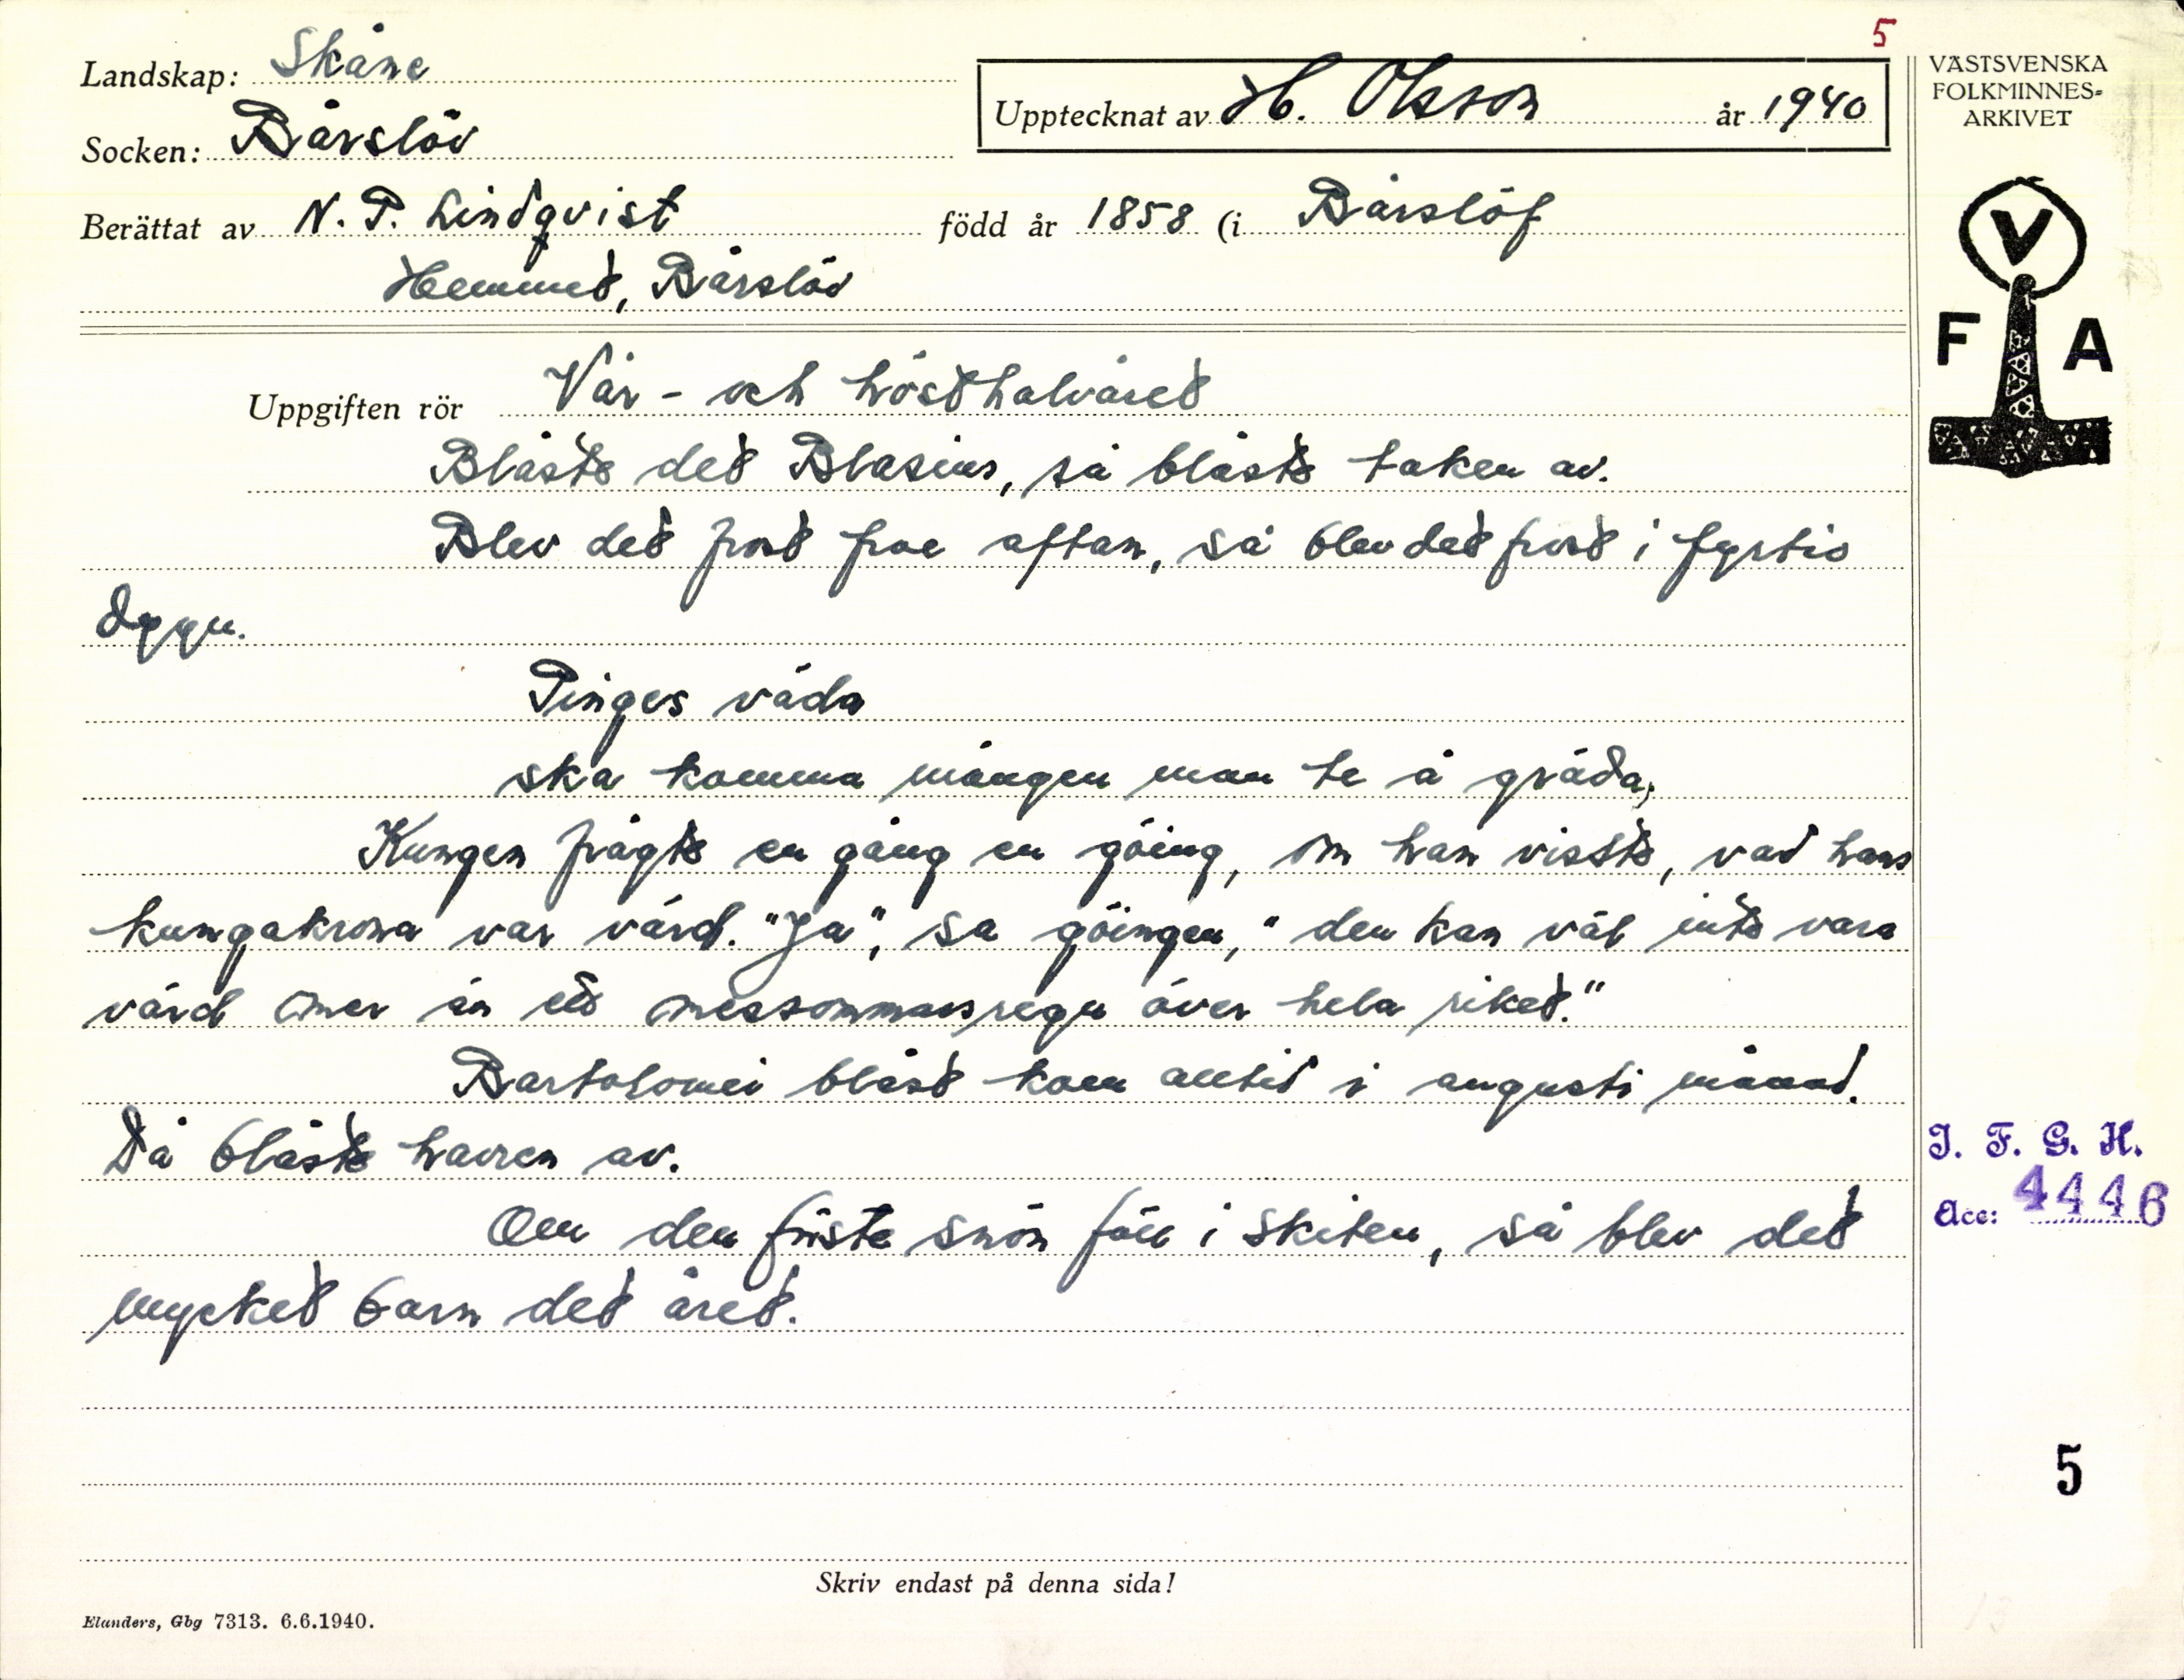 5
Landskap: Skåne
Socken: Bårslöv
Upptecknat av H. Olsson år 1940
Berättat av N. P. Lindqvist född år 1858 (i Bårslöf
Hemmet, Bårslöv
VÄSTSVENSKA
FOLKMINNES-
ARKIVET
V
F A
Uppgiften rör Vår- och hösthalvåret
Blåste det Blasius, så blåste taken av.
Blev det frost froe aftan, så blev det frost i fyrtio
dygn.
Pinges väda
ska komma mången man te å gräda,
Kungen frågte en gång en göing, om han visste, vad hans
kungakrona var värd. "Ja", sa göingen, "den kan väl inte vara
värd mer än ett messommarsregn över hela riket."
Bartolomei blåst kom alltid i augusti månad.
Då blåste havren av.
Om den första snön föll i skiten, så blev det
mycket barn det året.
I. F. G. H.
Acc: 4446
5
Skriv endast på denna sida!
Elanders, Gbg 7313. 6.6.1940.